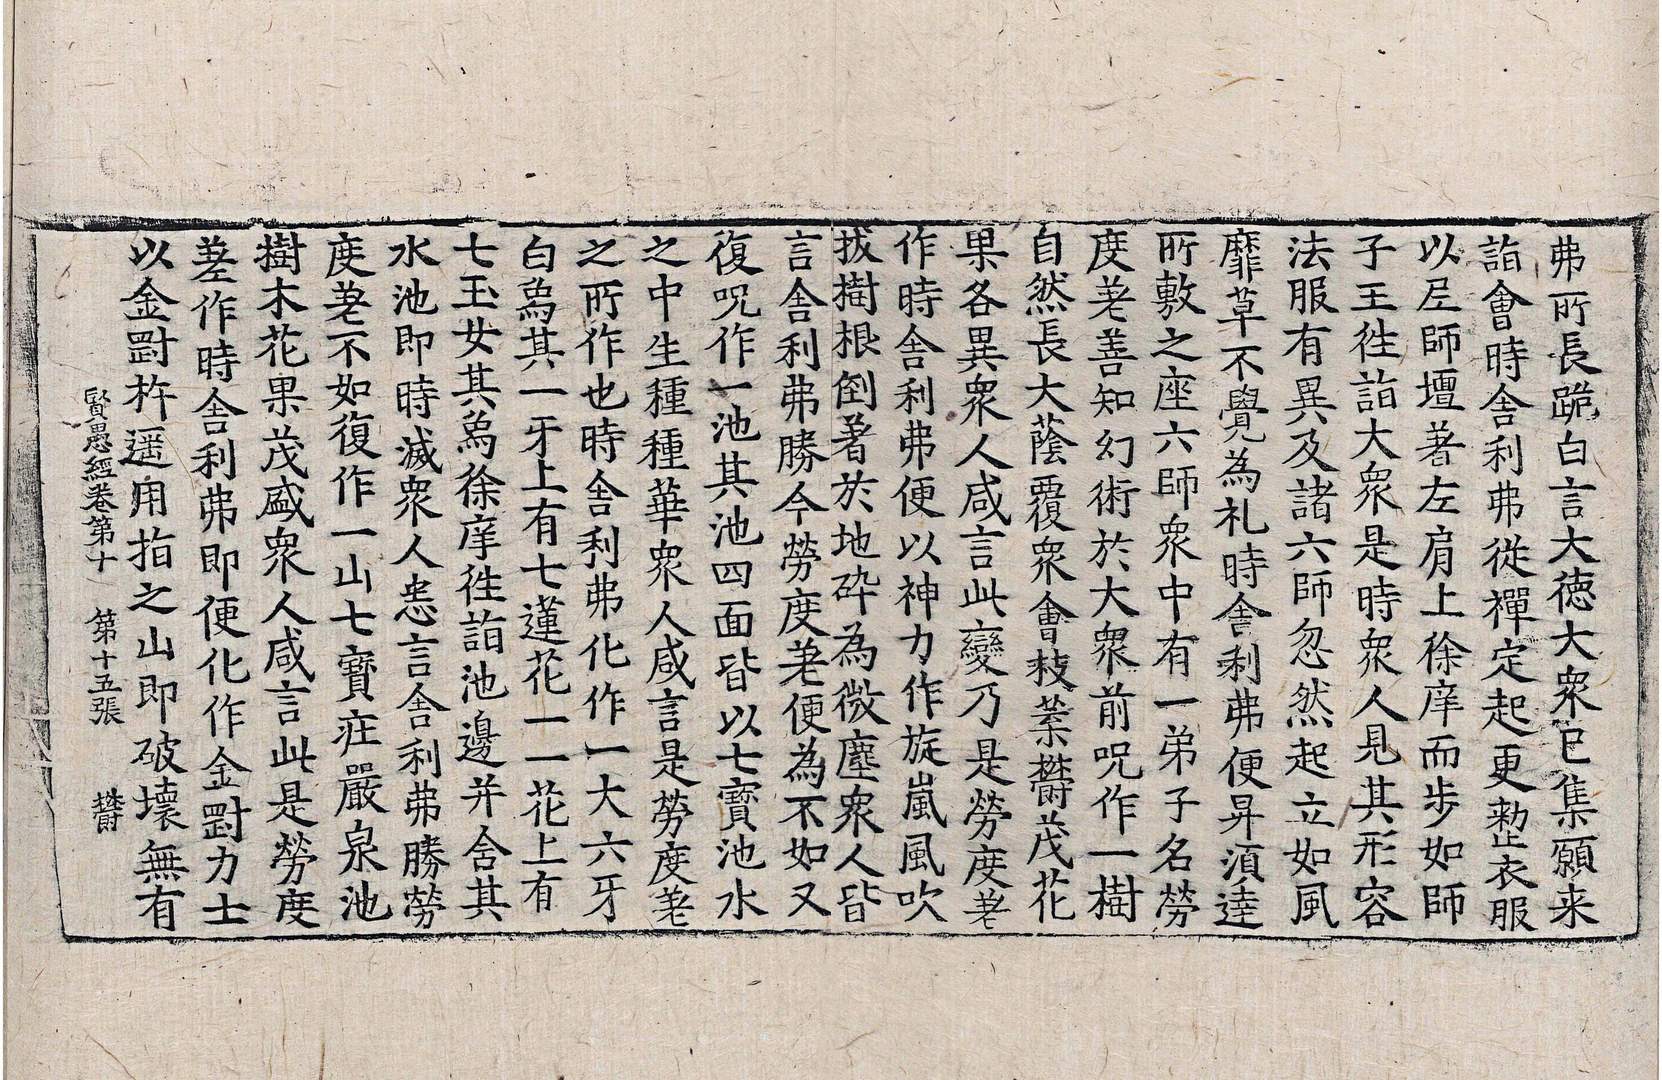 弗所長跪白言大德大衆已集願来
詣會時舎利弗從禪定起更整衣服
以尼師壇著左肩上徐庠而步如師
子王徃詣大衆是時衆人見其形容
法服有異及諸六師忽然起立如風
靡草不覺為礼時舎利弗便昇湏達
所敷之座六師衆中有一弟子名勞
度差善知幻術於大衆前呪作一樹
自然長大蔭覆衆會枝葉欝茂花
果各異衆人咸言此變乃是勞度差
作時舎利弗便以神力作旋嵐風吹
拔樹根倒著於地碎為微塵衆人皆
言舎利弗勝今勞度差便為不如又
復呪作一池其池四面皆以七寳池水
之中生種種華衆人咸言是勞度差
之所作也時舎利弗化作一大六牙
白象其一牙上有七蓮花一一花上有
七玉女其象徐庠徃詣池邊并含其
水池即時滅衆人悉言舎利弗勝勞
度差不如復作一山七寳莊嚴泉池
樹木花果茂盛衆人咸言此是勞度
差作時舎利弗即便化作金剛力士
以金剛杵遥用指之山即破壞無有
賢愚經卷第十　第十五張　欝